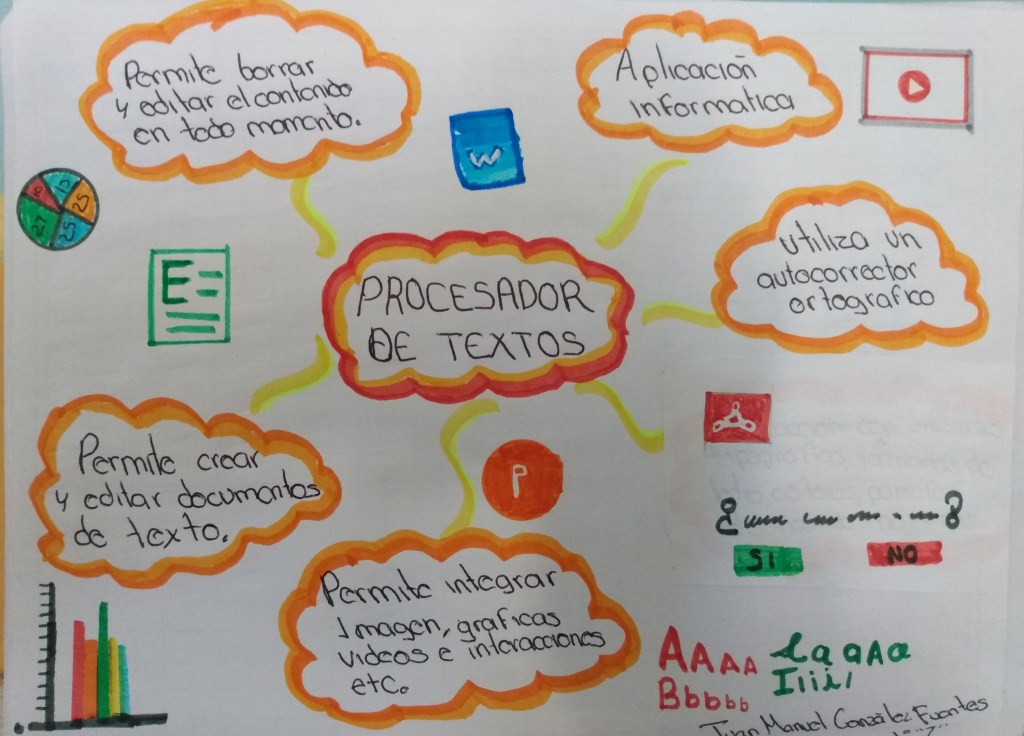 Permite borrar
y editar el contenido
en todo momento.
Aplicación
informatica
W
10
12
25
25
27
utiliza un
autocorrector
ortografico
E
PROCESADOR
DE TEXTOS
Permite crear
y editar documentos
de texto.
P
SI
NO
Permite integrar
Imagen, graficas
videos e interacciones
etc.
AAAA
Bbbbb
aAa
Juan Manuel González Fuentes